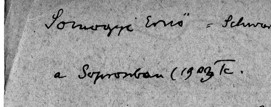 Somogyi Ernő = Schwar
a Sopronban (1903 k.